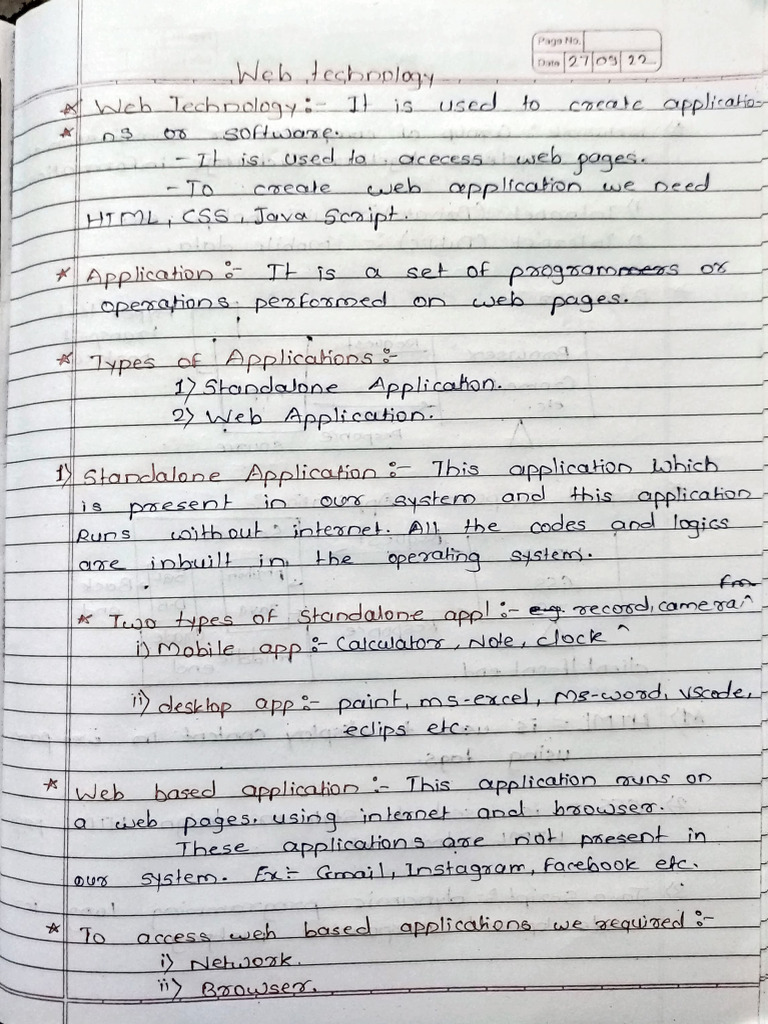 Page No.
Date 27 09 22
Web technology
* Web Technology:- It is used to create applicatio-
* ns or software.
- It is used to acecess web pages.
- To create web application we need
HTML, CSS, Java Script.
* Application:- It is a set of programmers or
operations performed on web pages.
* Types of Applications:-
1) Standalone Application.
2) Web Application.
1) Standalone Application:- This application which
is present in our system and this application
Runs without internet. All the codes and logics
are inbuilt in the operating system.
* Two types of standalone appl:- eg. record, camera
i) Mobile app:- Calculator, Note, clock ^
ii) desktop app:- paint, ms-excel, Ms-word, vscode,
eclips etc.
* Web based application:- This application runs on
a web pages, using internet and browser.
These applications are not present in
our system. Ex:- Gmail, Instagram, facebook etc.
* To access web based applications we required:-
i) Network.
ii) Browser.